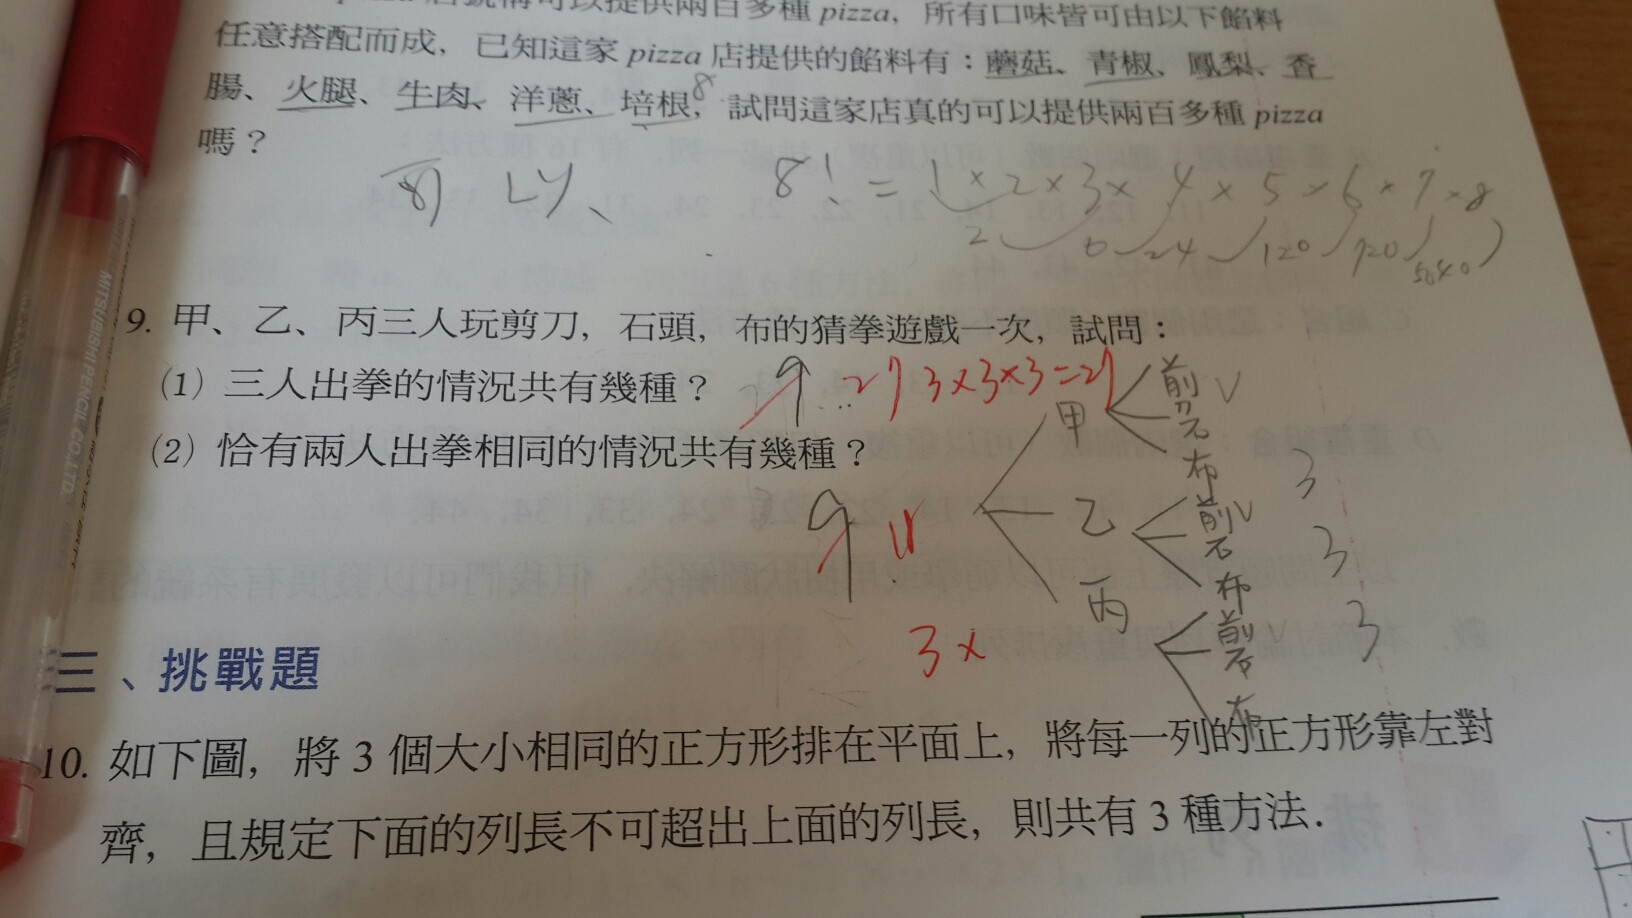 店號稱可以提供兩百多種 pizza，所有口味皆可由以下餡料
任意搭配而成，已知這家 pizza 店提供的餡料有：蘑菇、青椒、鳳梨、香
腸、火腿、牛肉、洋蔥、培根，試問這家店真的可以提供兩百多種 pizza
8
嗎？
可以、 8! = 1×2×3×4×5×6×7×8
2 6 24 120 720 5040
9. 甲、乙、丙三人玩剪刀，石頭，布的猜拳遊戲一次，試問：
(1) 三人出拳的情況共有幾種？ 9 27 3×3×3=27
(2) 恰有兩人出拳相同的情況共有幾種？
9
甲 剪 石 布 3
乙 剪 石 布 3
丙 剪 石 布 3
3×
三、挑戰題
10. 如下圖，將 3 個大小相同的正方形排在平面上，將每一列的正方形靠左對
齊，且規定下面的列長不可超出上面的列長，則共有 3 種方法.
MITSUBISHI PENCIL CO., LTD.